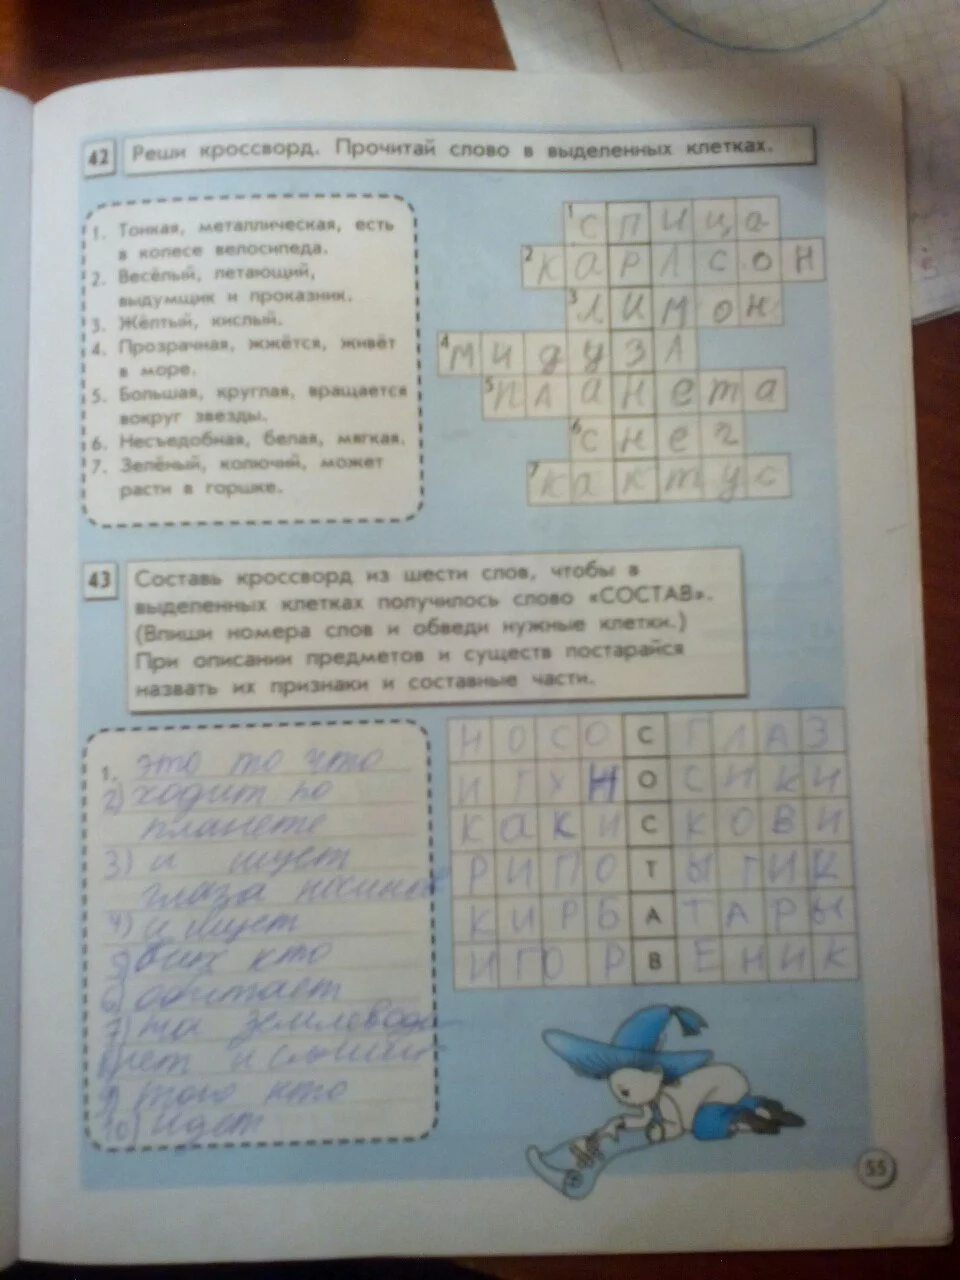 42 Реши кроссворд. Прочитай слово в выделенных клетках.
1. Тонкая, металлическая, есть
в колесе велосипеда.
2. Весёлый, летающий,
выдумщик и проказник.
3. Жёлтый, кислый.
4. Прозрачная, жжётся, живёт
в море.
5. Большая, круглая, вращается
вокруг звезды.
6. Несъедобная, белая, мягкая.
7. Зелёный, колючий, может
расти в горшке.
1 спица
2 карлсон
3 лимон
4 мидуза
5 планета
6 снег
7 кактус
43 Составь кроссворд из шести слов, чтобы в
выделенных клетках получилось слово «СОСТАВ».
(Впиши номера слов и обведи нужные клетки.)
При описании предметов и существ постарайся
назвать их признаки и составные части.
1. это то что
2) ходит по
планете
3) и ищет
глаза
4) и ищет
кто
6) обитает
7)
9) того кто
10) идет
НОСОСГЛАЗ
ИГУНОСИКИ
КАКИСКОВИ
РИПОТЫГИК
КИРБАТАРЫ
ИГОРВЕНИК
55